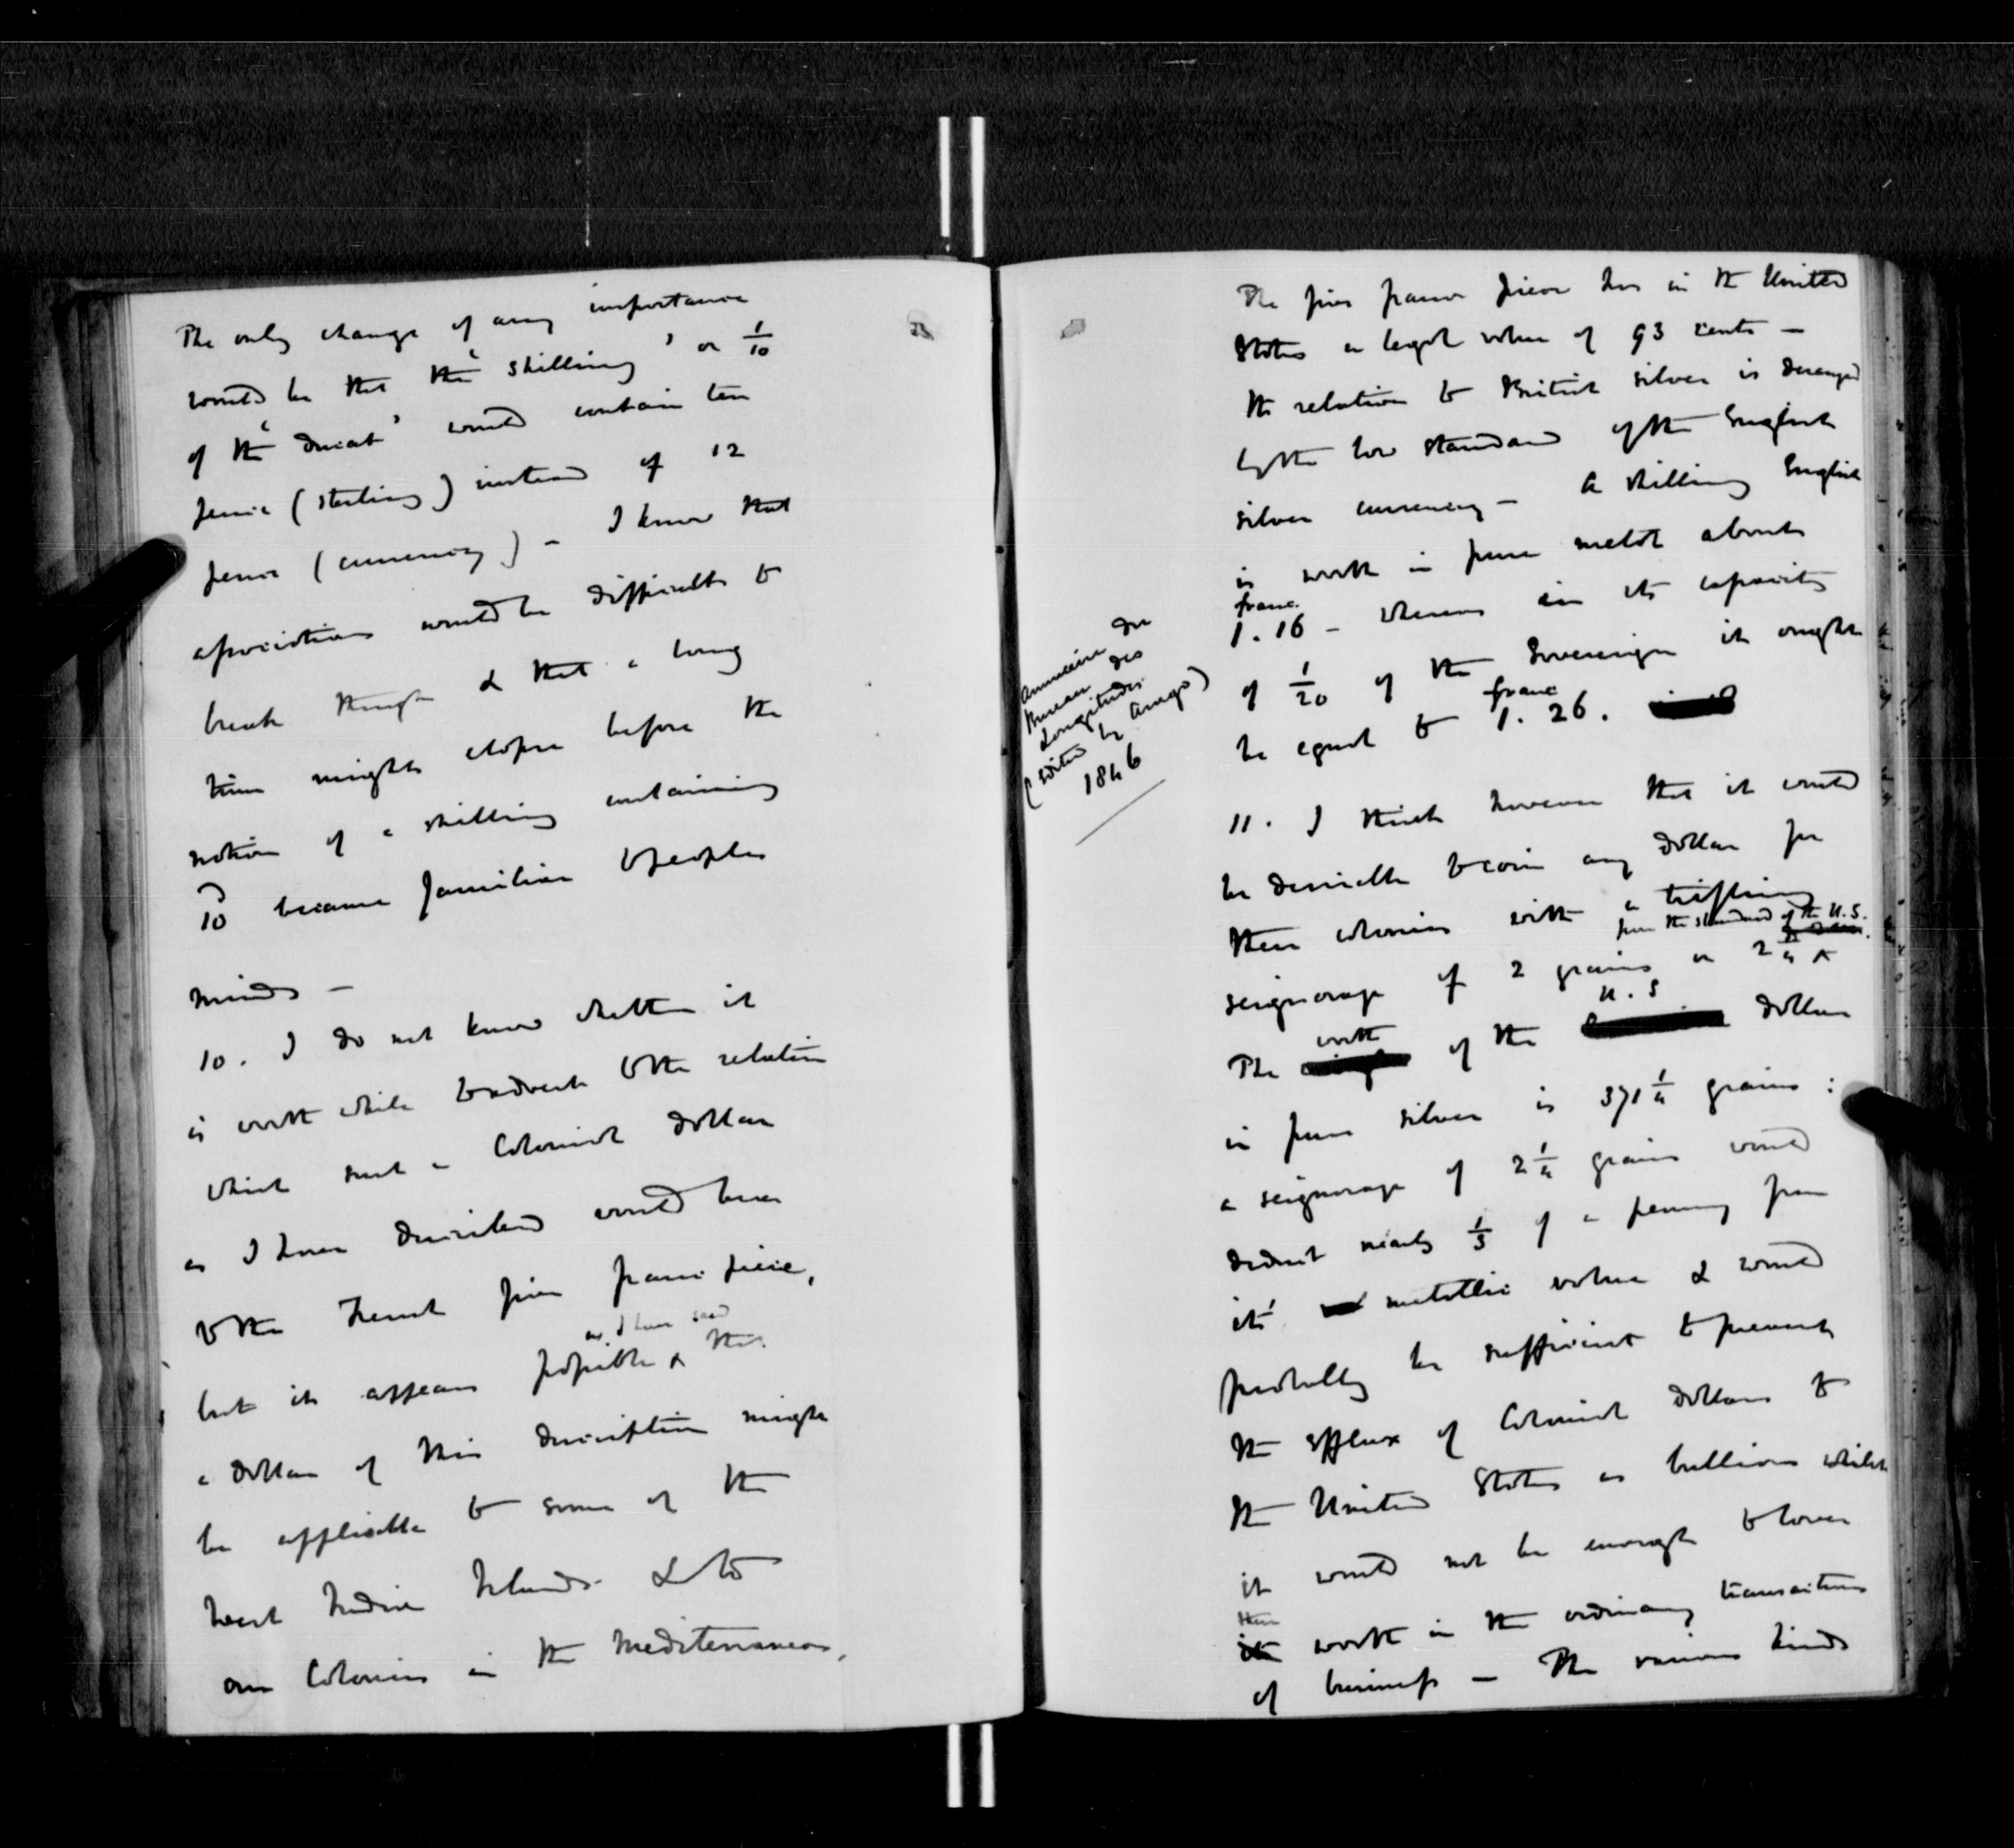 The only change of any importance
would be that the 'shilling' or 1/10
of the 'ducat' would contain ten
pence (sterling) instead of 12
pence (currency) - I know that
associations would be difficult to
break through & that a long
time might elapse before the
notion of a shilling containing
10 became familiar to peoples
minds -
10. I do not know whether it
is worth while to advert to the relation
which such a Colonial dollar
as I have described would bear
to the French five franc piece,
as I have said
but it appears possible ^ that
a dollar of this description might
be applicable to some of the
West India Islands & to
our Colonies in the Mediterranean.
The five franc piece has in the United
States a legal value of 93 cents -
the relation to British silver is deranged
by the low standard of the English
silver currency - A shilling English
is worth in pure metal about
franc.
1.16 - whereas in its capacity
of 1/20 of the Sovereign it ought
franc
be equal to 1.26.
Annuaire du
Bureau des
Longitudes
(edited by Arago)
1846
11. I think however that it would
be desirable to coin any dollar for
these colonies with a trifling
from the standard of the U.S.
seignorage of 2 grains or 2 1/4 ^
worth U.S
The of the dollar
in pure silver is 371 1/4 grains :
a seignorage of 2 1/4 grains would
deduct nearly 1/3 of a penny from
its' metallic value & would
probably be sufficient to prevent
the efflux of Colonial dollars to
the United States as bullion whilst
it would not be enough to lower
their
worth in the ordinary transactions
of business - The various kinds